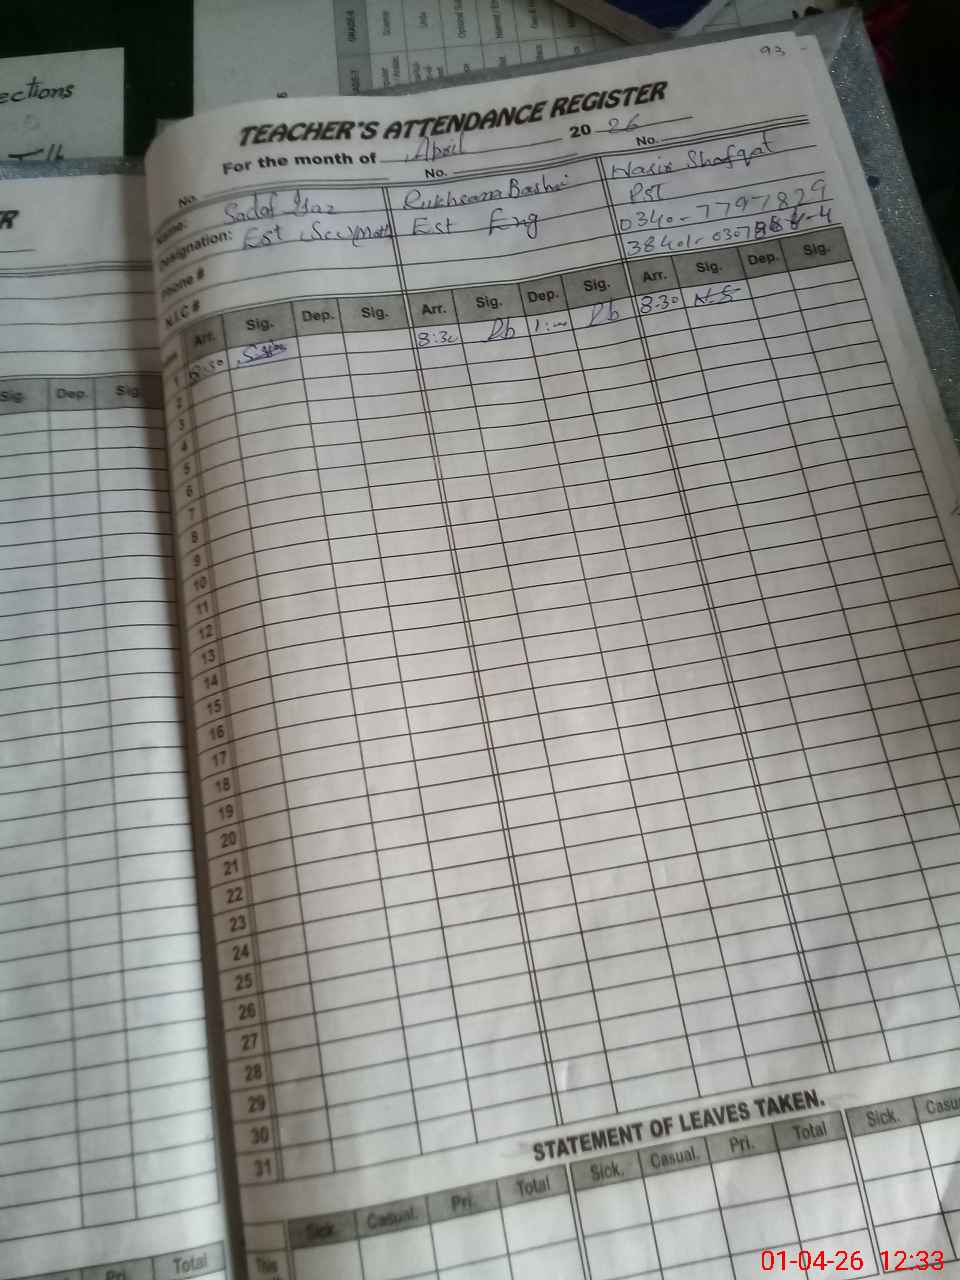 93
TEACHER'S ATTENDANCE REGISTER
For the month of April 2026
No. No. No.
Name: Sadaf Rukhsana Nasir Shafqat
Designation: Est Est Eng Pst
Phone # 0340-7797829
N.I.C # 38401-0307
Arr. Sig. Dep. Sig. Arr. Sig. Dep. Sig. Arr. Sig. Dep. Sig.
1 8:30 8:30 Rb 1:00 Rb 8:30 N.S
2
3
4
5
6
7
8
9
10
11
12
13
14
15
16
17
18
19
20
21
22
23
24
25
26
27
28
29
30
31
STATEMENT OF LEAVES TAKEN.
Sick. Casual. Pri. Total Sick. Casual. Pri. Total Sick.
This
ections
Sig. Dep. Sig.
Total
01-04-26 12:33